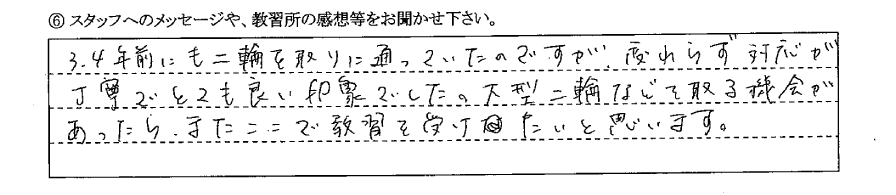 ⑥ スタッフへのメッセージや、教習所の感想等をお聞かせ下さい。
3.4年前にも二輪を取りに通っていたのですが、変わらず対応が
丁寧でとても良い印象でした。大型二輪などを取る機会が
あったら、またここで教習を受けたいと思います。